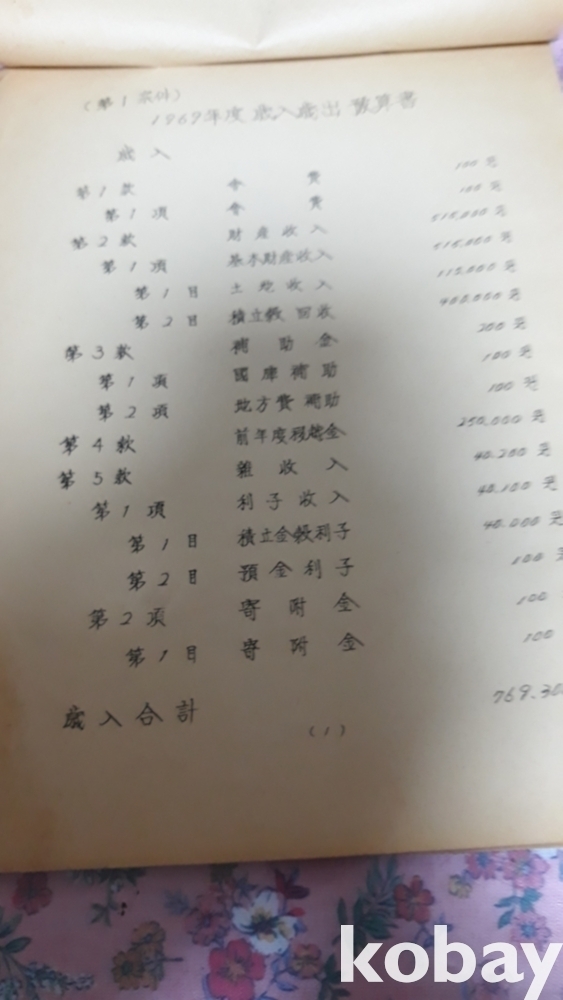 (第1案件)
1969年度 歲入歲出 豫算書
歲入
第1款 會費 100 원
第1項 會費 100 원
第2款 財産收入 515,000 원
第1項 基本財産收入 515,000 원
第1目 土地收入 115,000 원
第2目 積立穀 回收 400,000 원
第3款 補助金 200 원
第1項 國庫補助 100 원
第2項 地方費補助 100 원
第4款 前年度移越金 250,000 원
第5款 雜收入 40,200 원
第1項 利子收入 40,100 원
第1目 積立金穀利子 40,000 원
第2目 預金利子 100
第2項 寄附金 100
第1目 寄附金 100
歲入合計 769.30
(1)
kobay